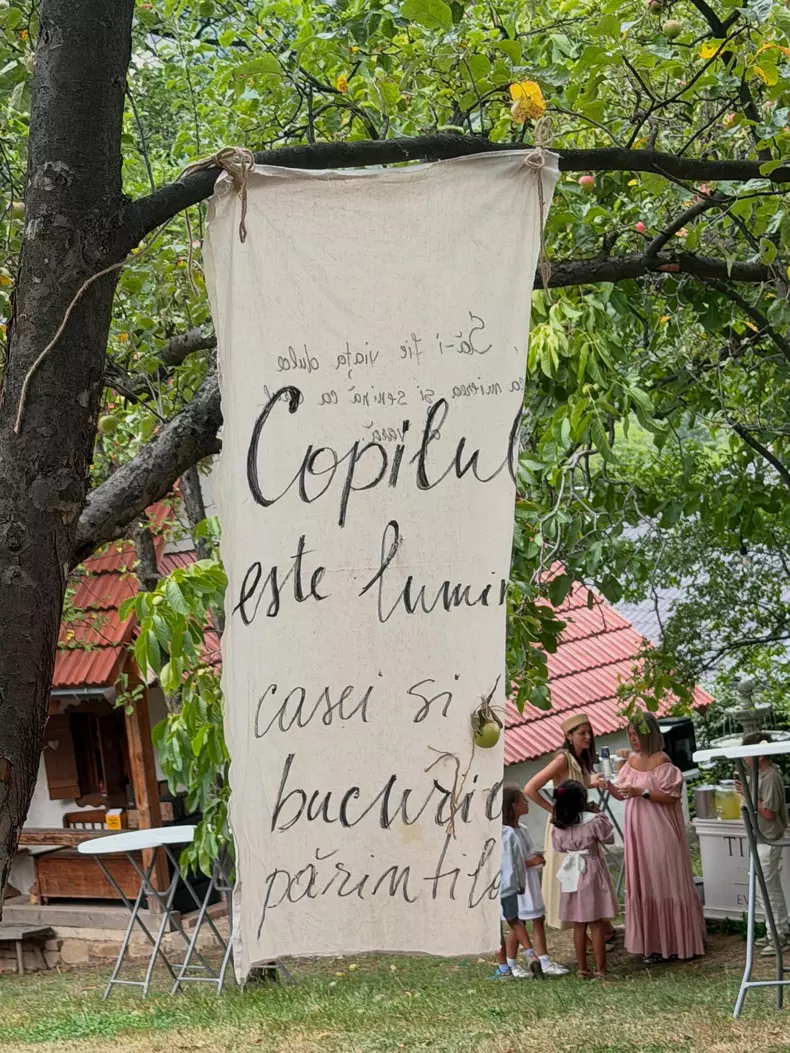 Să-i fie viața dulce
ca mierea și senină ca
vară
Copilul
este lumin
casei si
bucuri
părintilo